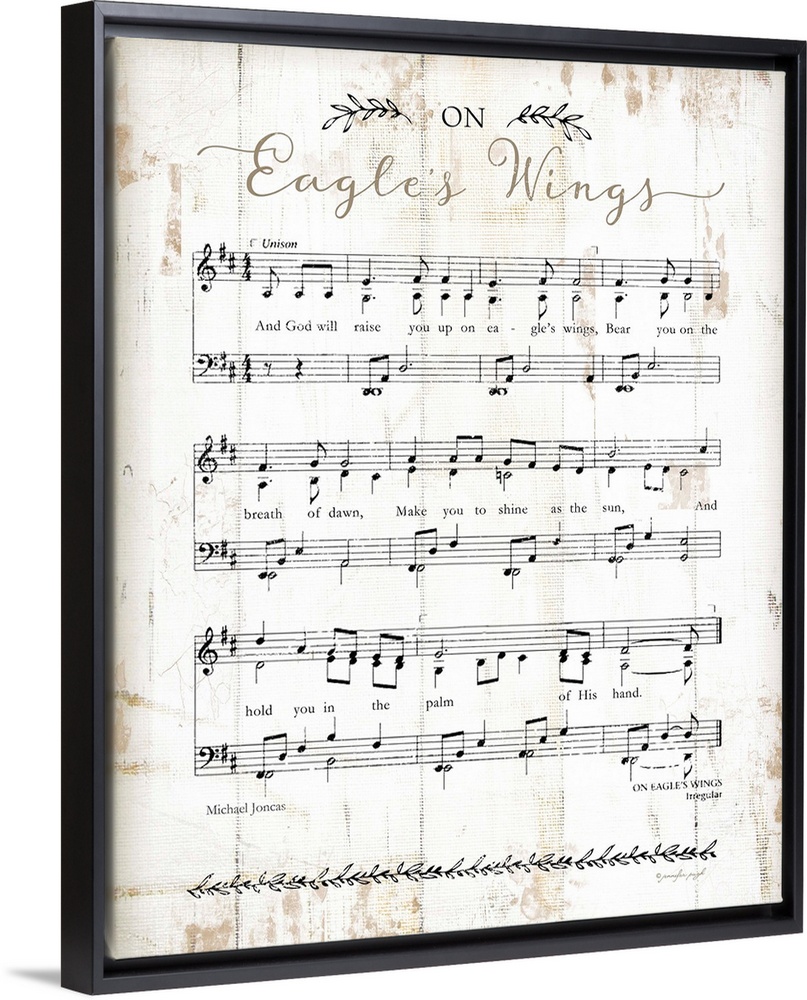 ON
Eagle's Wings
Unison
And God will raise you up on ea - gle's wings, Bear you on the
breath of dawn, Make you to shine as the sun, And
hold you in the palm of His hand.
ON EAGLE'S WINGS
Irregular
Michael Joncas